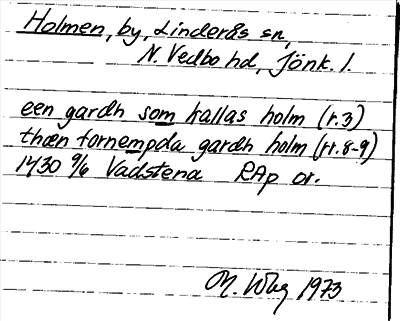 Holmen, by, Linderås sn,
N. Vedbo hd, Jönk. l.
een gardh som kallas holm (r.3)
thæn fornempda gardh holm (rr.8-9)
1430 9/6 Vadstena RAp or.
M. 1973